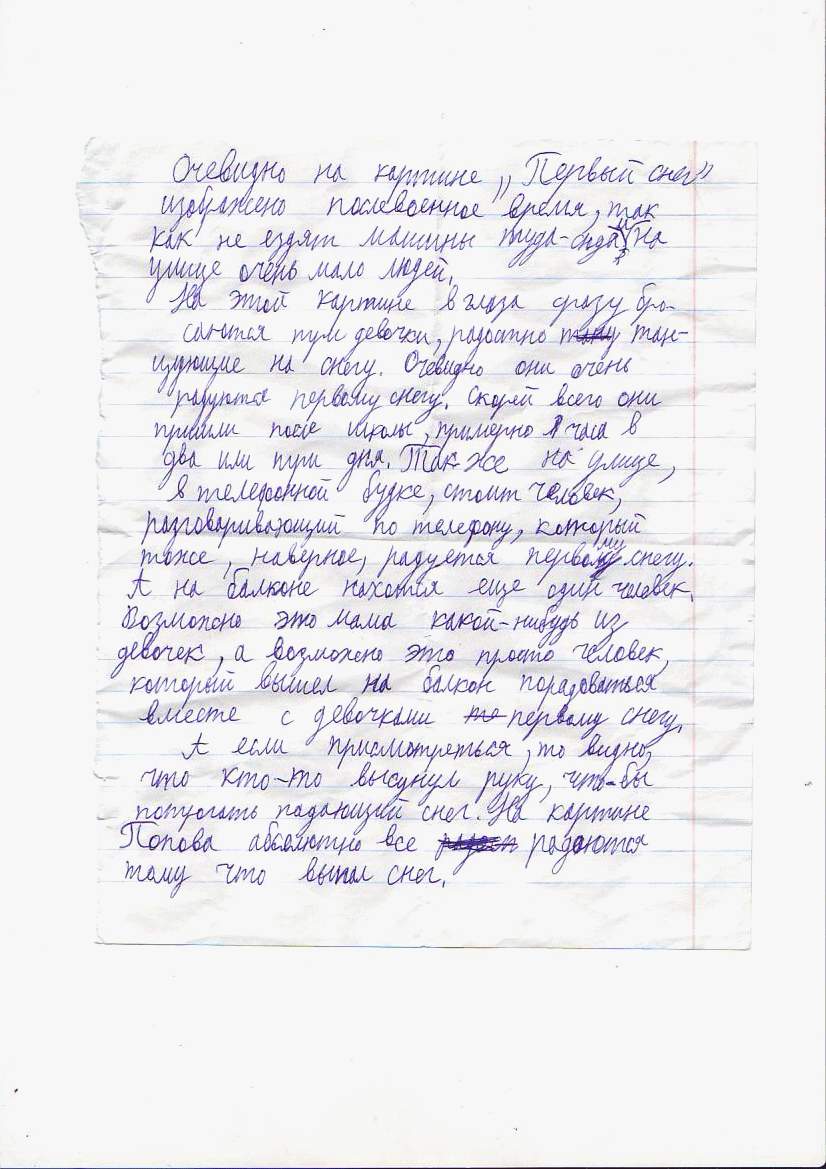 Очевидно на картине „Первый снег"
изображено послевоенное время, так
как не ездят машины туда-сюда, и на
улице очень мало людей.
На этой картине в глаза сразу бро-
саются три девочки, радостно тан-
цующие на снегу. Очевидно они очень
радуются первому снегу. Скорей всего они
пришли после школы, примерно часа в
два или три дня. Так-же на улице,
в телефонной будке, стоит человек,
разговаривающий по телефону, который
тоже, наверное, радуется первому снегу.
А на балконе находтся еще один человек.
Возможно это мама какой-нибудь из
девочек, а возможно это просто человек,
который вышел на балкон порадоваться
вместе с девочками первому снегу.
А если присмотреться, то видно,
что кто-то высунул руку, что-бы
потрогать падающий снег. На картине
Попова абсолютно все радаются
тому что выпал снег.